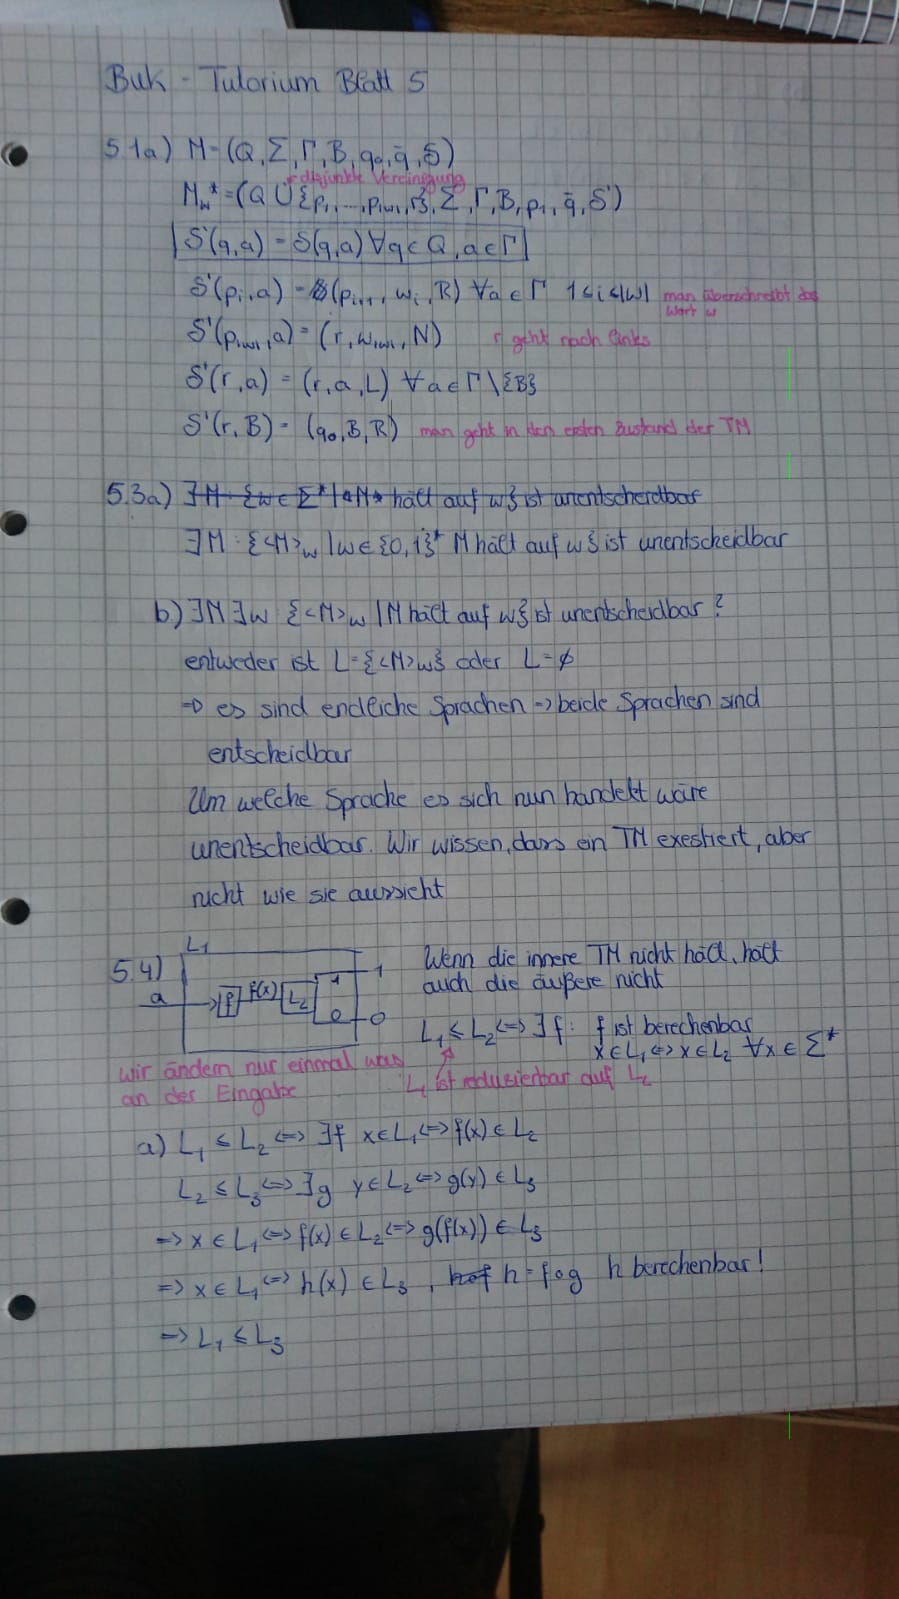 BuK - Tutorium Blatt 5
5.1a) M=(Q,Σ,Γ,B,q₀,q̄,δ)
disjunkte Vereinigung
M*_w=(Q ∪ {p₁,...,p_|w|,r},Σ,Γ,B,p₁,q̄,δ')
δ'(q,a) = δ(q,a) ∀q∈Q, a∈Γ
δ'(pᵢ,a) = (pᵢ₊₁, wᵢ, R) ∀a∈Γ 1≤i<|w| man überschreibt das
Wort w
δ'(p_|w|,a) = (r, w_|w|, N) r geht nach links
δ'(r,a) = (r,a,L) ∀a∈Γ\{B}
δ'(r,B) = (q₀,B,R) man geht in den ersten Zustand der TM
5.3a) ∃M: {w∈Σ* | <M> hält auf w} ist unentscheidbar
∃M: {<M>w | w∈{0,1}* M hält auf w} ist unentscheidbar
b) ∃M ∃w {<M>w | M hält auf w} ist unentscheidbar?
entweder ist L={<M>w} oder L=∅
=> es sind endliche Sprachen => beide Sprachen sind
entscheidbar
Um welche Sprache es sich nun handelt wäre
unentscheidbar. Wir wissen, dass ein TM exestiert, aber
nicht wie sie aussieht
5.4)
L₁
a f f(x) L₂ 1 1
0 0
Wenn die innere TM nicht hält, hält
auch die äußere nicht
L₁ ≤ L₂ <=> ∃f: f ist berechenbar
x∈L₁ <=> x∈L₂ ∀x∈Σ*
wir ändern nur einmal was
an der Eingabe
L₁ ist redusierbar auf L₂
a) L₁ ≤ L₂ <=> ∃f x∈L₁ <=> f(x)∈L₂
L₂ ≤ L₃ <=> ∃g y∈L₂ <=> g(y)∈L₃
=> x∈L₁ <=> f(x)∈L₂ <=> g(f(x))∈L₃
=> x∈L₁ <=> h(x)∈L₃, h=f∘g h berechenbar!
=> L₁ ≤ L₃